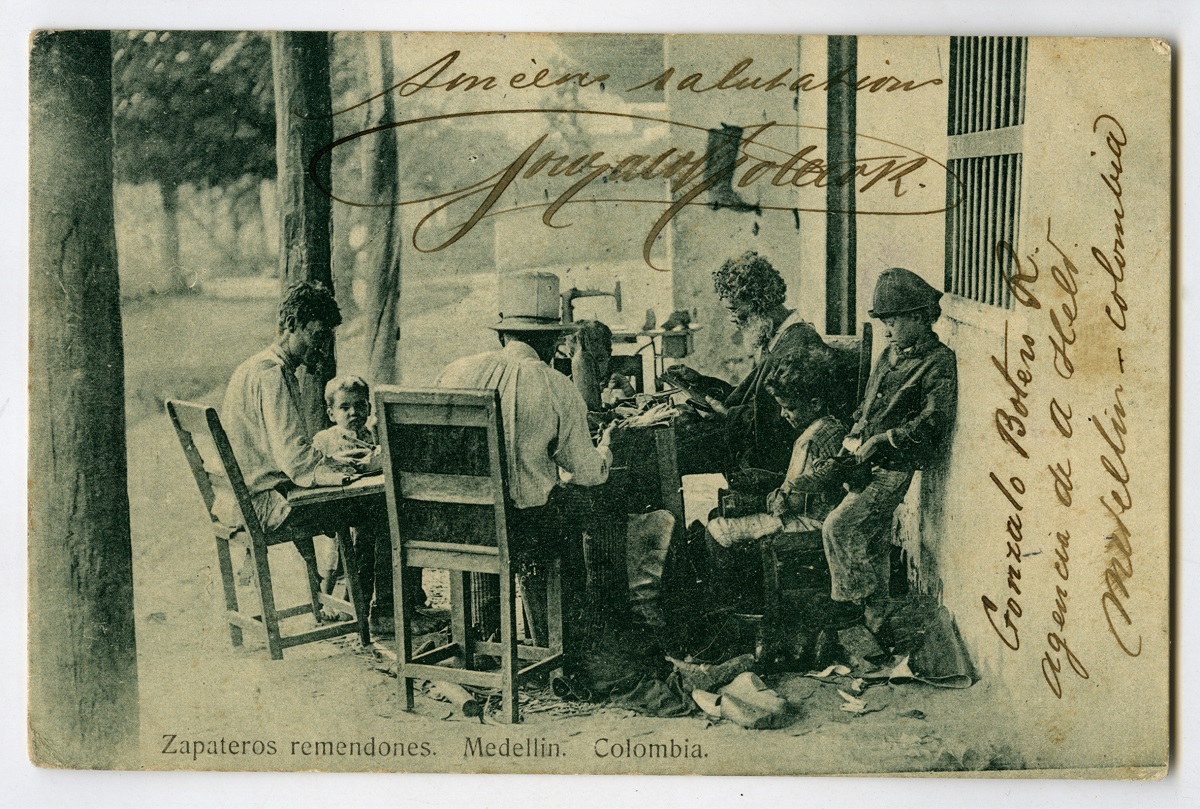 Sincères salutations
Gonzalo Botero R.
Gonzalo Botero R.
agencia de A Held
Medellin - colombia
Zapateros remendones. Medellin. Colombia.